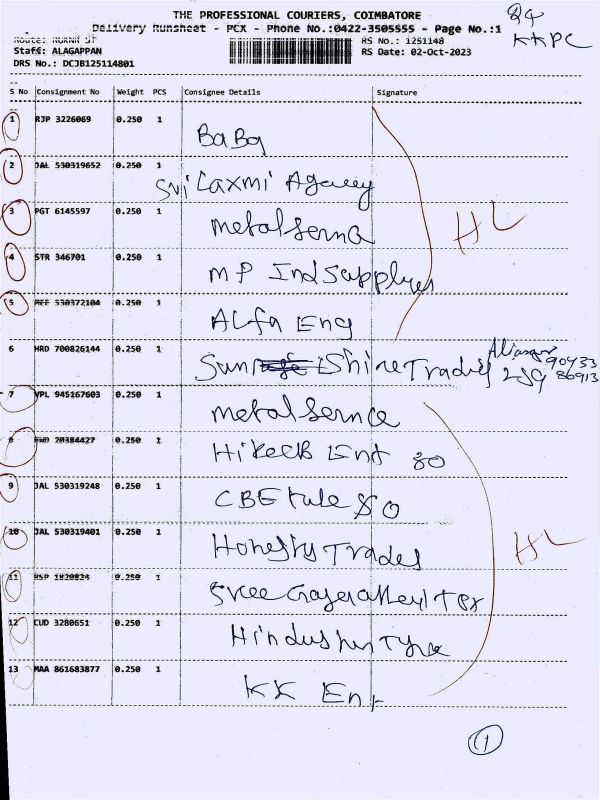 THE PROFESSIONAL COURIERS, COIMBATORE
Delivery Runsheet - PCX - Phone No.:0422-3505555 - Page No.:1
24
KKPC
RS No.: 1251148
Staff: ALAGAPPAN
RS Date: 02-Oct-2023
DRS No.: DCJB125114801
S No Consignment No Weight PCS Consignee Details Signature
1 RJP 3226069 0.250 1
BaBa
2 JAL 530319652 0.250 1
Sri Laxmi Agency
3 PGT 6145597 0.250 1
metal
HL
4 STR 346701 0.250 1
MP Ind Supplyes
5 MEE 530372104 0.250 1
ALfa Eng
6 HRD 700826144 0.250 1
Sun Shine Trades
90433
86913
7 VPL 945167603 0.250 1
metal
8 20384427 0.250 1
Ent 80
9 JAL 530319248 0.250 1
CBE tule 80
10 JAL 530319401 0.250 1
Honesty Trades
HL
11 RSP 1820824 0.250 1
Sree
12 CUD 3280651 0.250 1
Tyre
13 MAA 861683877 0.250 1
KK Ent
1